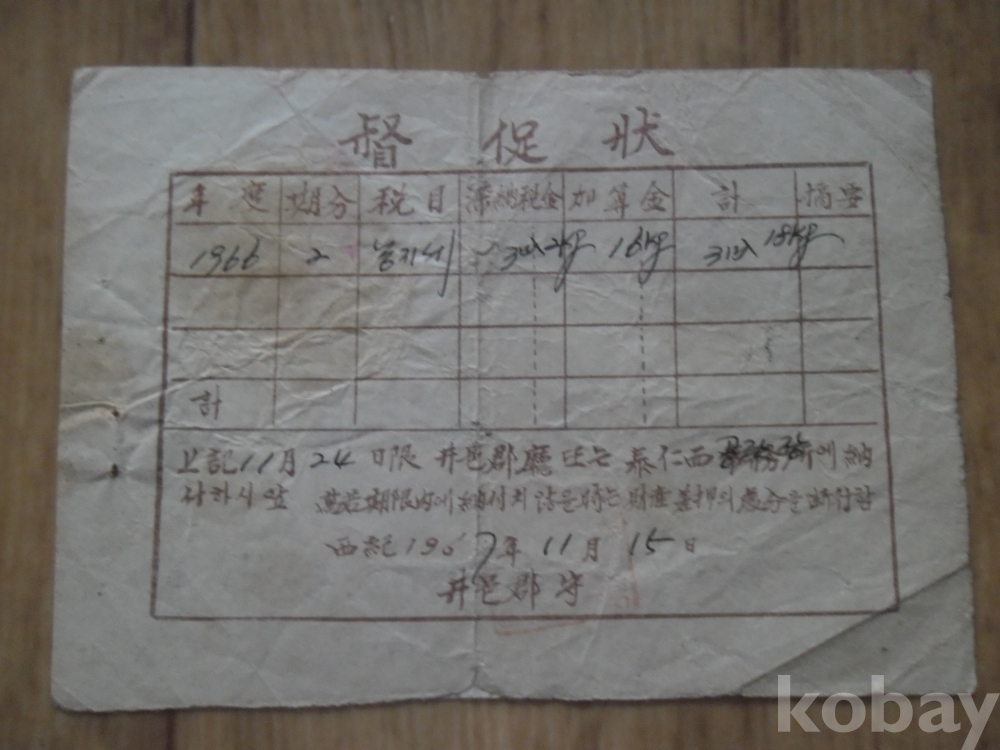 督促狀
年度 期分 税目 滯納税金 加算金 計 摘要
1966 2 농지세 16kg 18kg
計
上記 11月 24日限 井邑郡廳 또는 泰仁面 에 納
付하시압 期限內에 納付치 않을時는 財産差押의 處分을 斷行함
西紀 1967年 11月 15日
井邑郡守
kobay